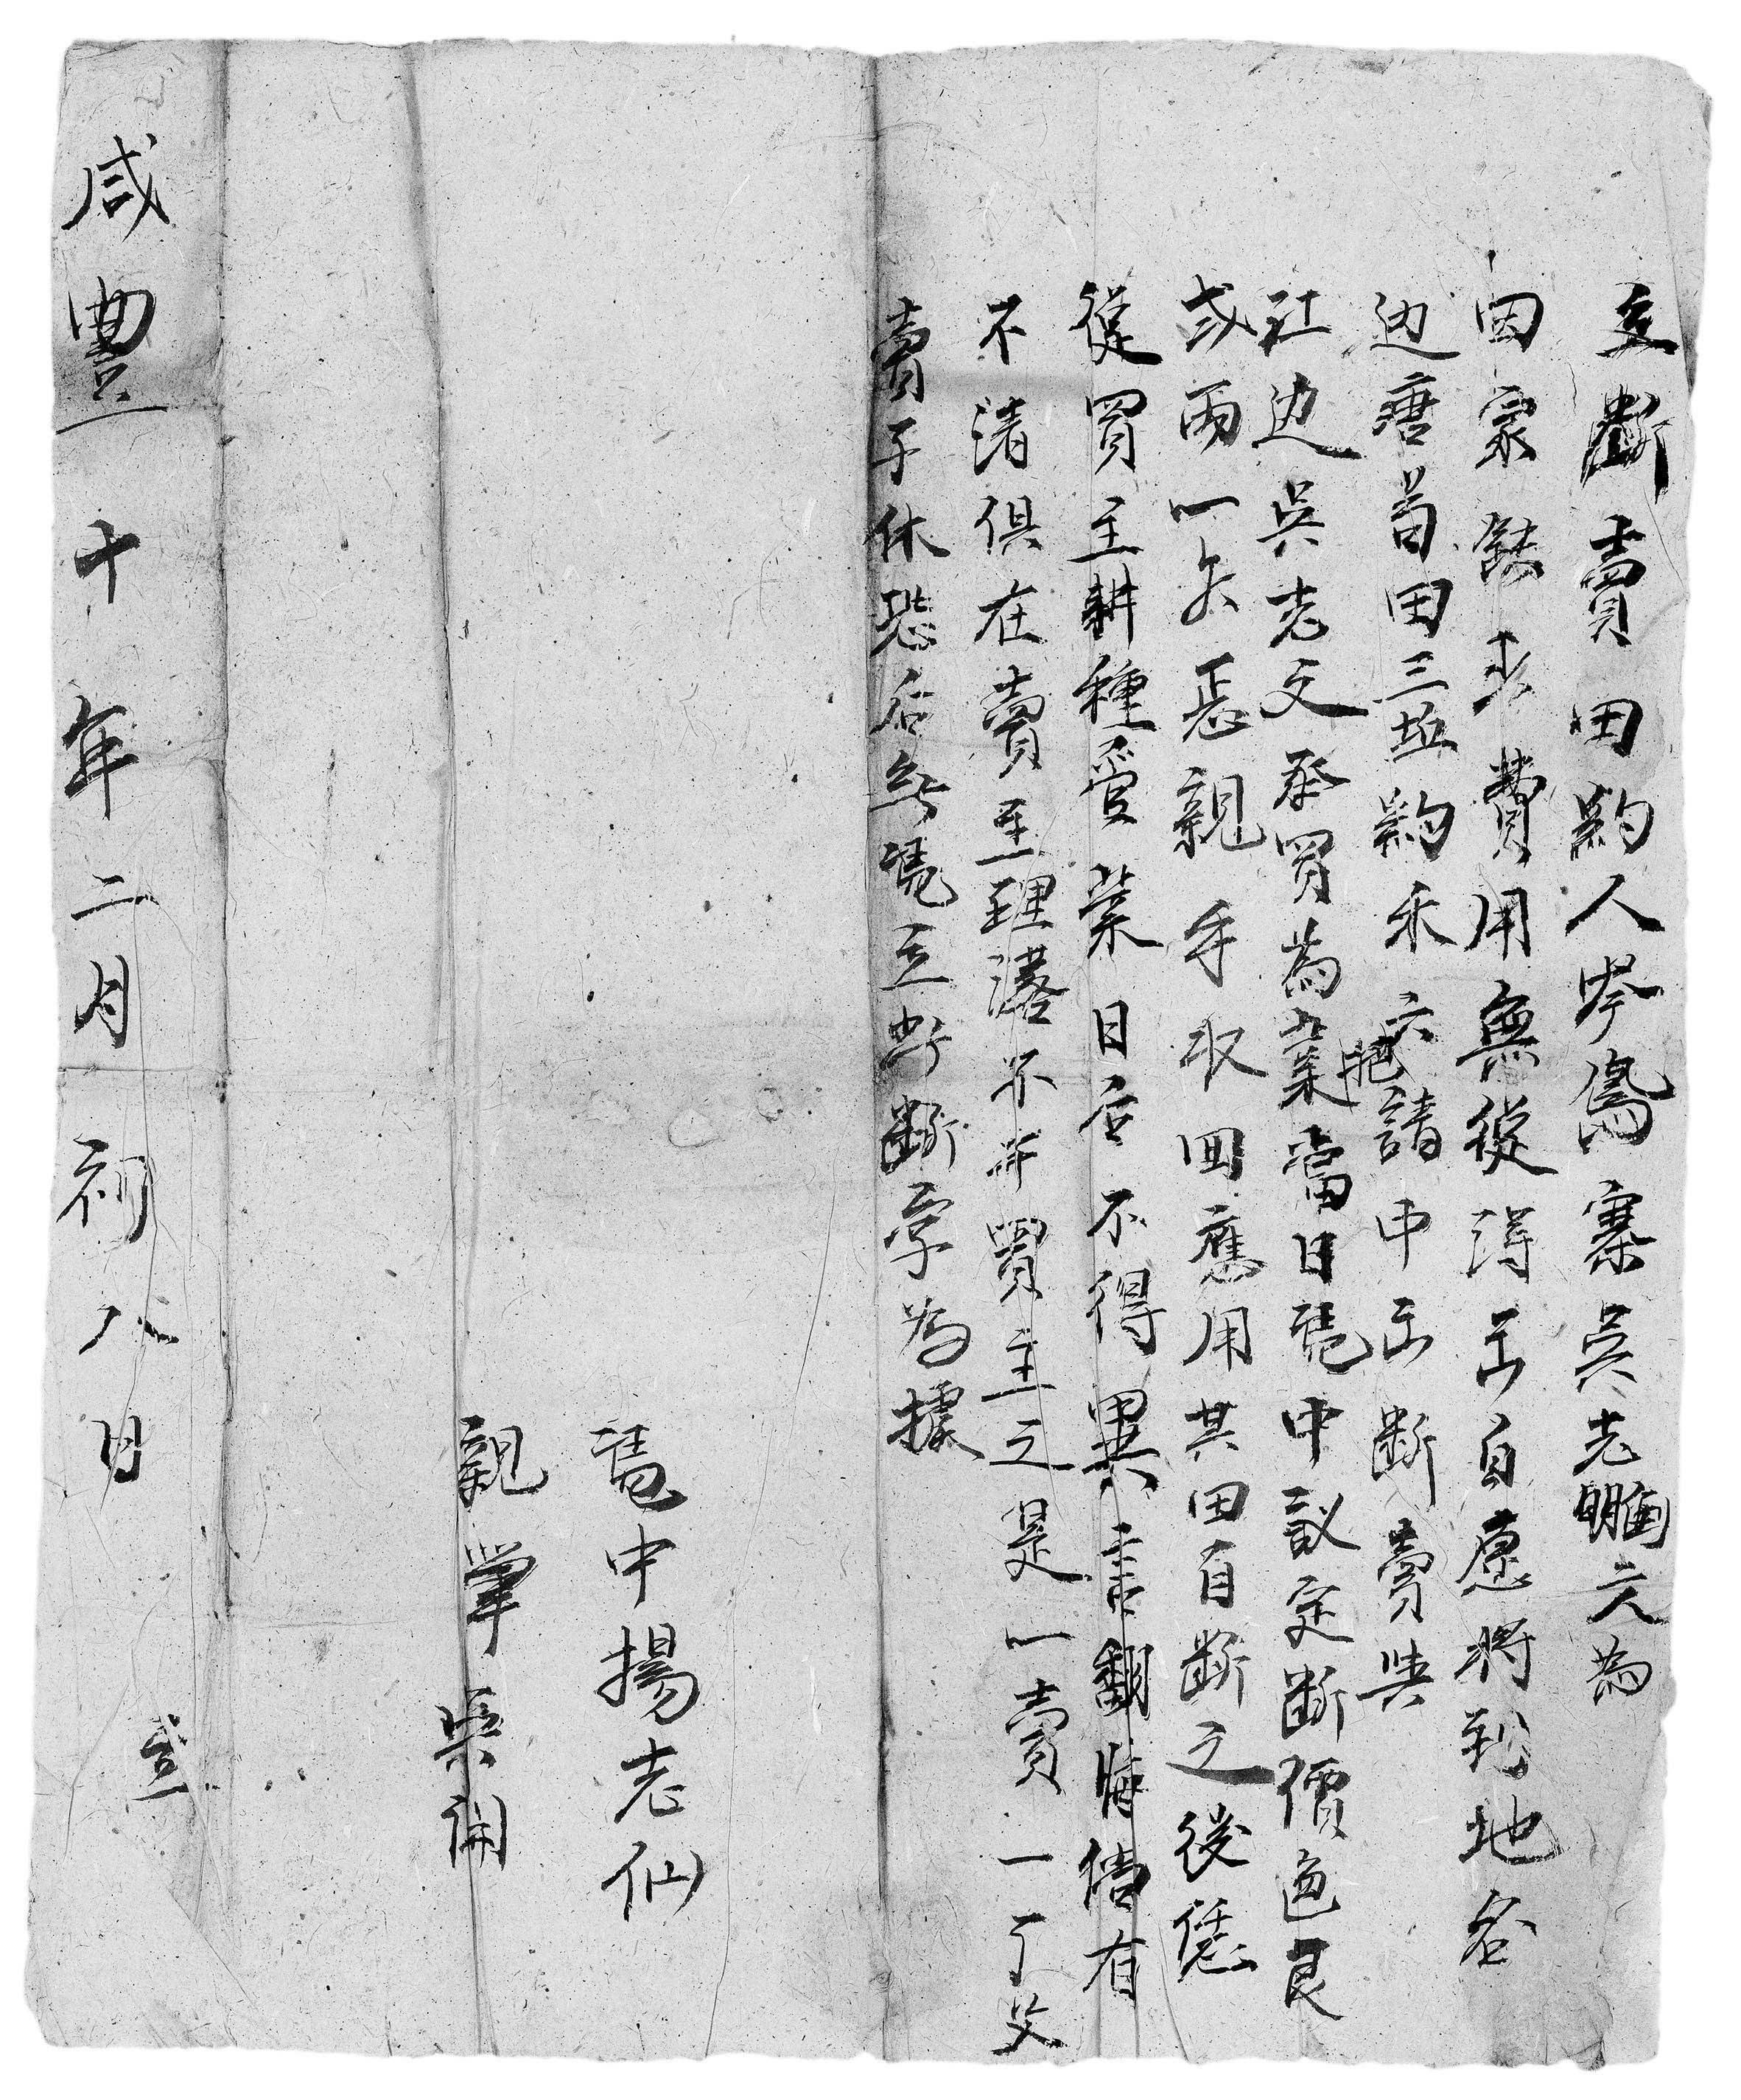 立斷賣田約人岑鳬寨吳老剛元為
因家缺少費用無從得出自愿將到地名
边唐苟田三坵約禾六把請中出斷賣與
江边吳老文承買為業當日凴中議定斷價色艮
弍兩一㱏恁親手收回應用其田自斷之後恁
從買主耕種管業日后不得異言翻悔倘有
不清俱在賣主理落不干買主之是一賣一了父
賣子休恐后無凴立此斷字為據
凴中揚志仙
親筆吳開
咸豐十年二月初八日 立